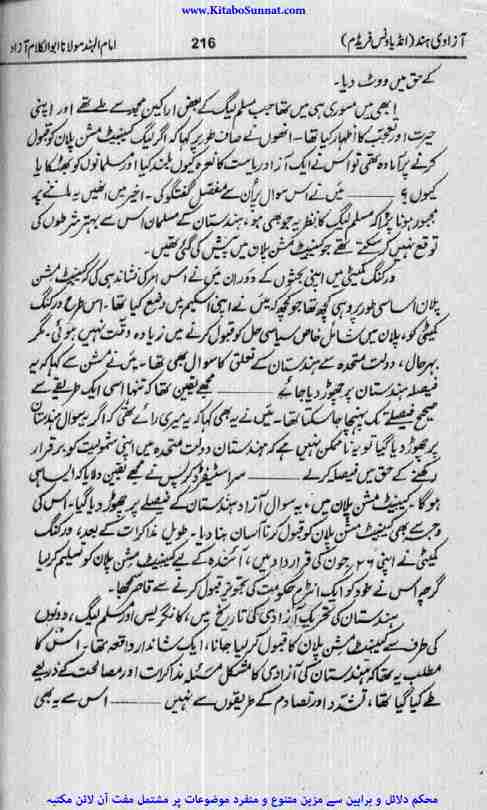 www.KitaboSunnat.com
آزادی ہند (انڈیا ونس فریڈم) 216 امام الہند مولانا ابوالکلام آزاد
کے حق میں ووٹ دیا۔
ابھی میں مسوری ہی میں تھا جب مسلم لیگ کے بعض اراکین مجھ سے ملے تھے اور اپنی
حیرت اور تعجب کا اظہار کیا تھا۔ انھوں نے صاف طور پر کہا کہ اگر لیگ کیبنیٹ مشن پلان کو قبول
کرنے پر آمادہ تھی تو اس نے ایک آزاد ریاست کا نعرہ کیوں بلند کیا اور مسلمانوں کو بھٹکایا
کیوں؟ ——— میں نے اس سوال پر ان سے مفصل گفتگو کی۔ اخیر میں انھیں یہ ماننے پر
مجبور ہونا پڑا کہ مسلم لیگ کا نظریہ جو بھی ہو، ہندستان کے مسلمان اس سے بہتر شرطوں کی
توقع نہیں کر سکتے تھے جو کیبنیٹ مشن پلان میں پیش کی گئی تھیں۔
ورکنگ کمیٹی میں اپنی بحثوں کے دوران میں نے اس امر کی نشاندہی کی کہ کیبنیٹ مشن
پلان اساسی طور پر وہی کچھ تھا جو کچھ کہ میں نے اپنی اسکیم میں وضع کیا تھا۔ اس طرح ورکنگ
کمیٹی کو، پلان میں شامل خاص سیاسی حل کو قبول کرنے میں زیادہ دقت نہیں ہوئی۔ مگر
بہرحال، دولت متحدہ سے ہندستان کے تعلق کا سوال بھی تھا۔ میں نے مشن سے کہا کہ یہ
فیصلہ ہندستان پر چھوڑ دیا جائے ——— مجھے یقین تھا کہ تنہا اسی ایک طریقے سے
صحیح فیصلے تک پہنچا جا سکتا تھا۔ میں نے یہ بھی کہا کہ یہ میری رائے تھی کہ اگر یہ سوال ہندستان
پر چھوڑ دیا گیا تو یہ ناممکن نہیں ہے کہ ہندستان دولت متحدہ میں اپنی شمولیت کو برقرار
رکھنے کے حق میں فیصلہ کر لے ——— سر اسٹیفرڈ کرپس نے مجھے یقین دلایا کہ ایسا ہی
ہوگا۔ کیبنیٹ مشن پلان میں، یہ سوال آزاد ہندستان کے فیصلے پر چھوڑ دیا گیا۔ اس کی
وجہ سے بھی کیبنیٹ مشن پلان کو قبول کرنا آسان بنا دیا۔ طویل مذاکرات کے بعد، ورکنگ
کمیٹی نے اپنی ۲۶ جون کی قرارداد میں، آئندہ کے لیے کیبنیٹ مشن پلان کو تسلیم کر لیا
گرچہ اس نے خود کو ایک انٹرم حکومت کی تجویز قبول کرنے سے قاصر سمجھا۔
ہندستان کی تحریک آزادی کی تاریخ میں، کانگریس اور مسلم لیگ، دونوں
کی طرف سے کیبنیٹ مشن پلان کا قبول کر لیا جانا، ایک شاندار واقعہ تھا۔ اس کا
مطلب یہ تھا کہ ہندستان کی آزادی کا مشکل مسئلہ مذاکرات اور مصالحت کے ذریعے
طے کیا گیا تھا، تشدد اور تصادم کے طریقوں سے نہیں ——— اس سے یہ بھی
محکم دلائل و براہین سے مزین متنوع و منفرد موضوعات پر مشتمل مفت آن لائن مکتبہ